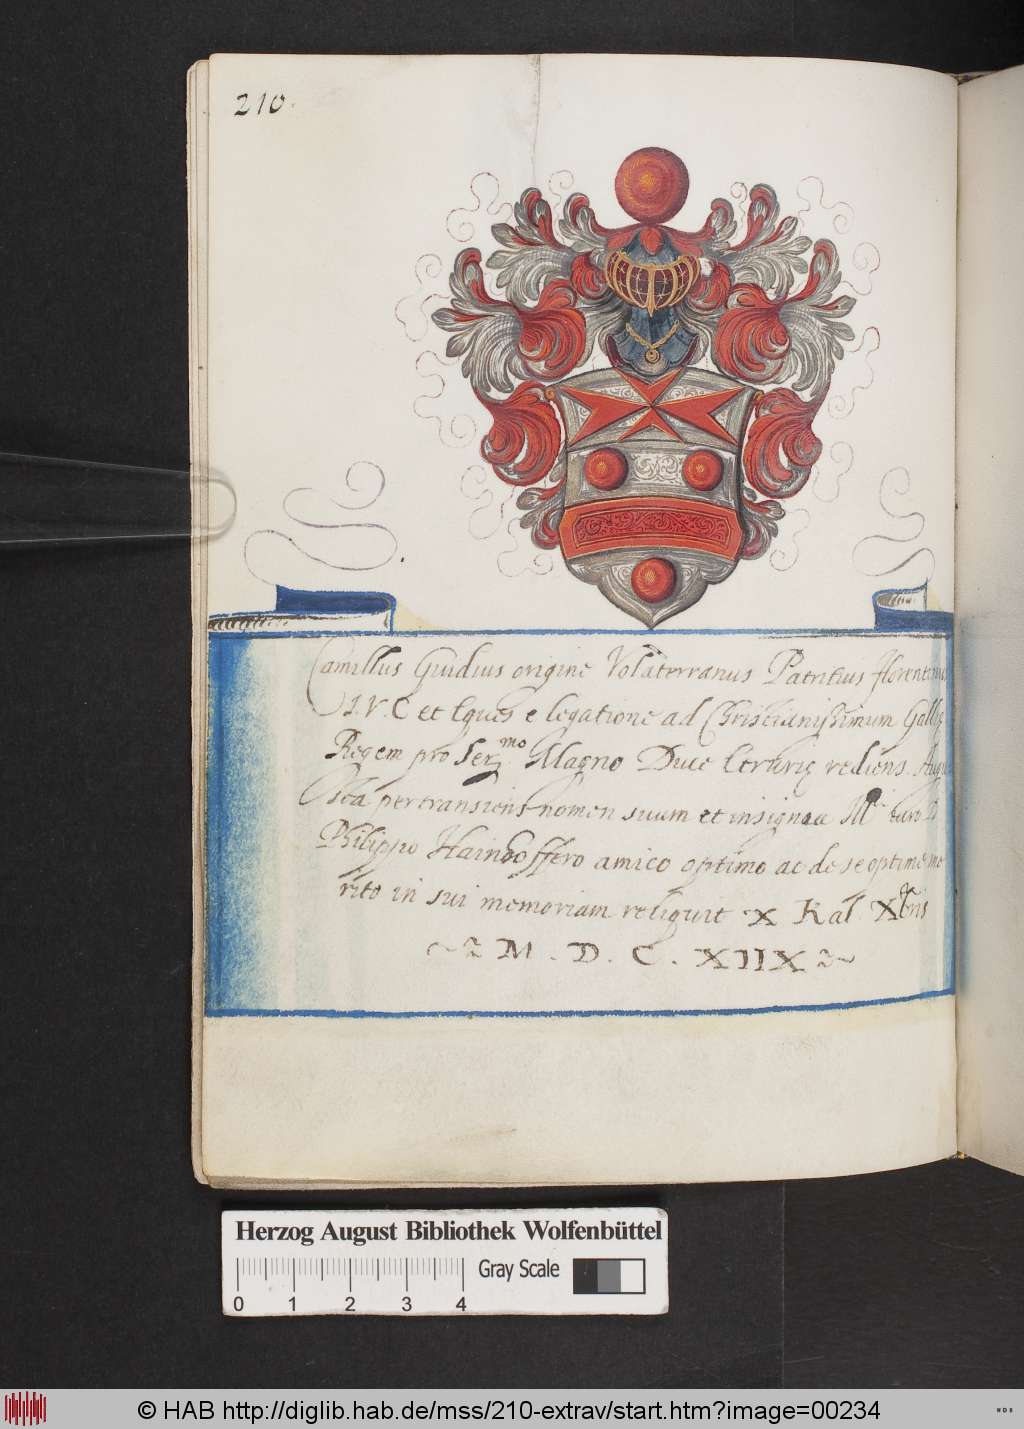 210.
Camillus Guidius origine Volaterranus Patritius florentinus
I. V. C et Eques e legatione ad Christianissimum Gallię
Regem pro Ser.mo Magno Duce Etrurię rediens Augu
sta pertransiens nomen suum et insignia
Philippo Hainhoffero amico optimo ac de se optime me
rito in sui memoriam reliquit X Kal. Xbris
M. D. C. XIIX
Herzog August Bibliothek Wolfenbüttel
Gray Scale
0 1 2 3 4
© HAB http://diglib.hab.de/mss/210-extrav/start.htm?image=00234